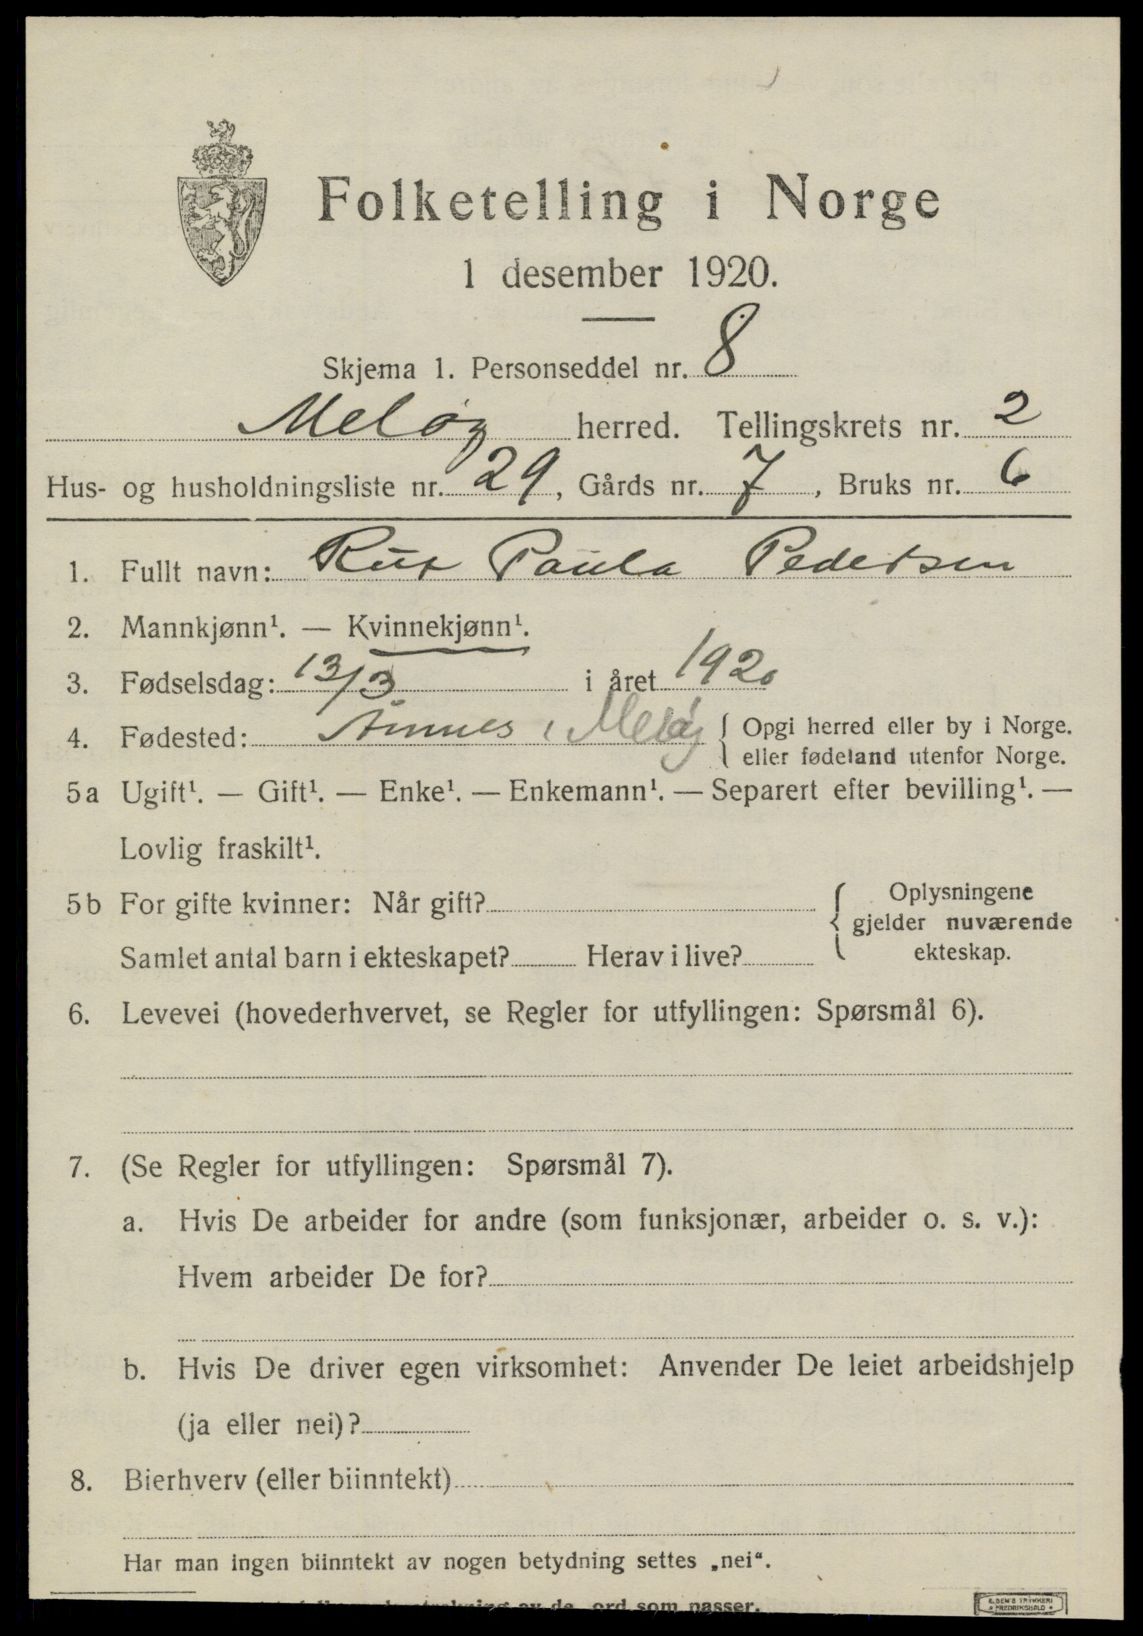 Folketelling i Norge
1 desember 1920.
Skjema 1. Personseddel nr. 8
Meløy herred. Tellingskrets nr. 2
Hus- og husholdningsliste nr. 29, Gårds nr. 7, Bruks nr. 6
1. Fullt navn: Rut Paula Pedersen
2. Mannkjønn¹. — Kvinnekjønn¹.
3. Fødselsdag: 13/3 i året 1920
4. Fødested: Åmnes i Meløy { Opgi herred eller by i Norge.
eller fødeland utenfor Norge.
5a Ugift¹. — Gift¹. — Enke¹. — Enkemann¹. — Separert efter bevilling¹. —
Lovlig fraskilt¹.
5b For gifte kvinner: Når gift?
Samlet antal barn i ekteskapet? Herav i live?
{ Oplysningene
gjelder nuværende
ekteskap.
6. Levevei (hovederhvervet, se Regler for utfyllingen: Spørsmål 6).
7. (Se Regler for utfyllingen: Spørsmål 7).
a. Hvis De arbeider for andre (som funksjonær, arbeider o. s. v.):
Hvem arbeider De for?
b. Hvis De driver egen virksomhet: Anvender De leiet arbeidshjelp
(ja eller nei)?
8. Bierhverv (eller biinntekt)
Har man ingen biinntekt av nogen betydning settes „nei“.
av de ord som passer.